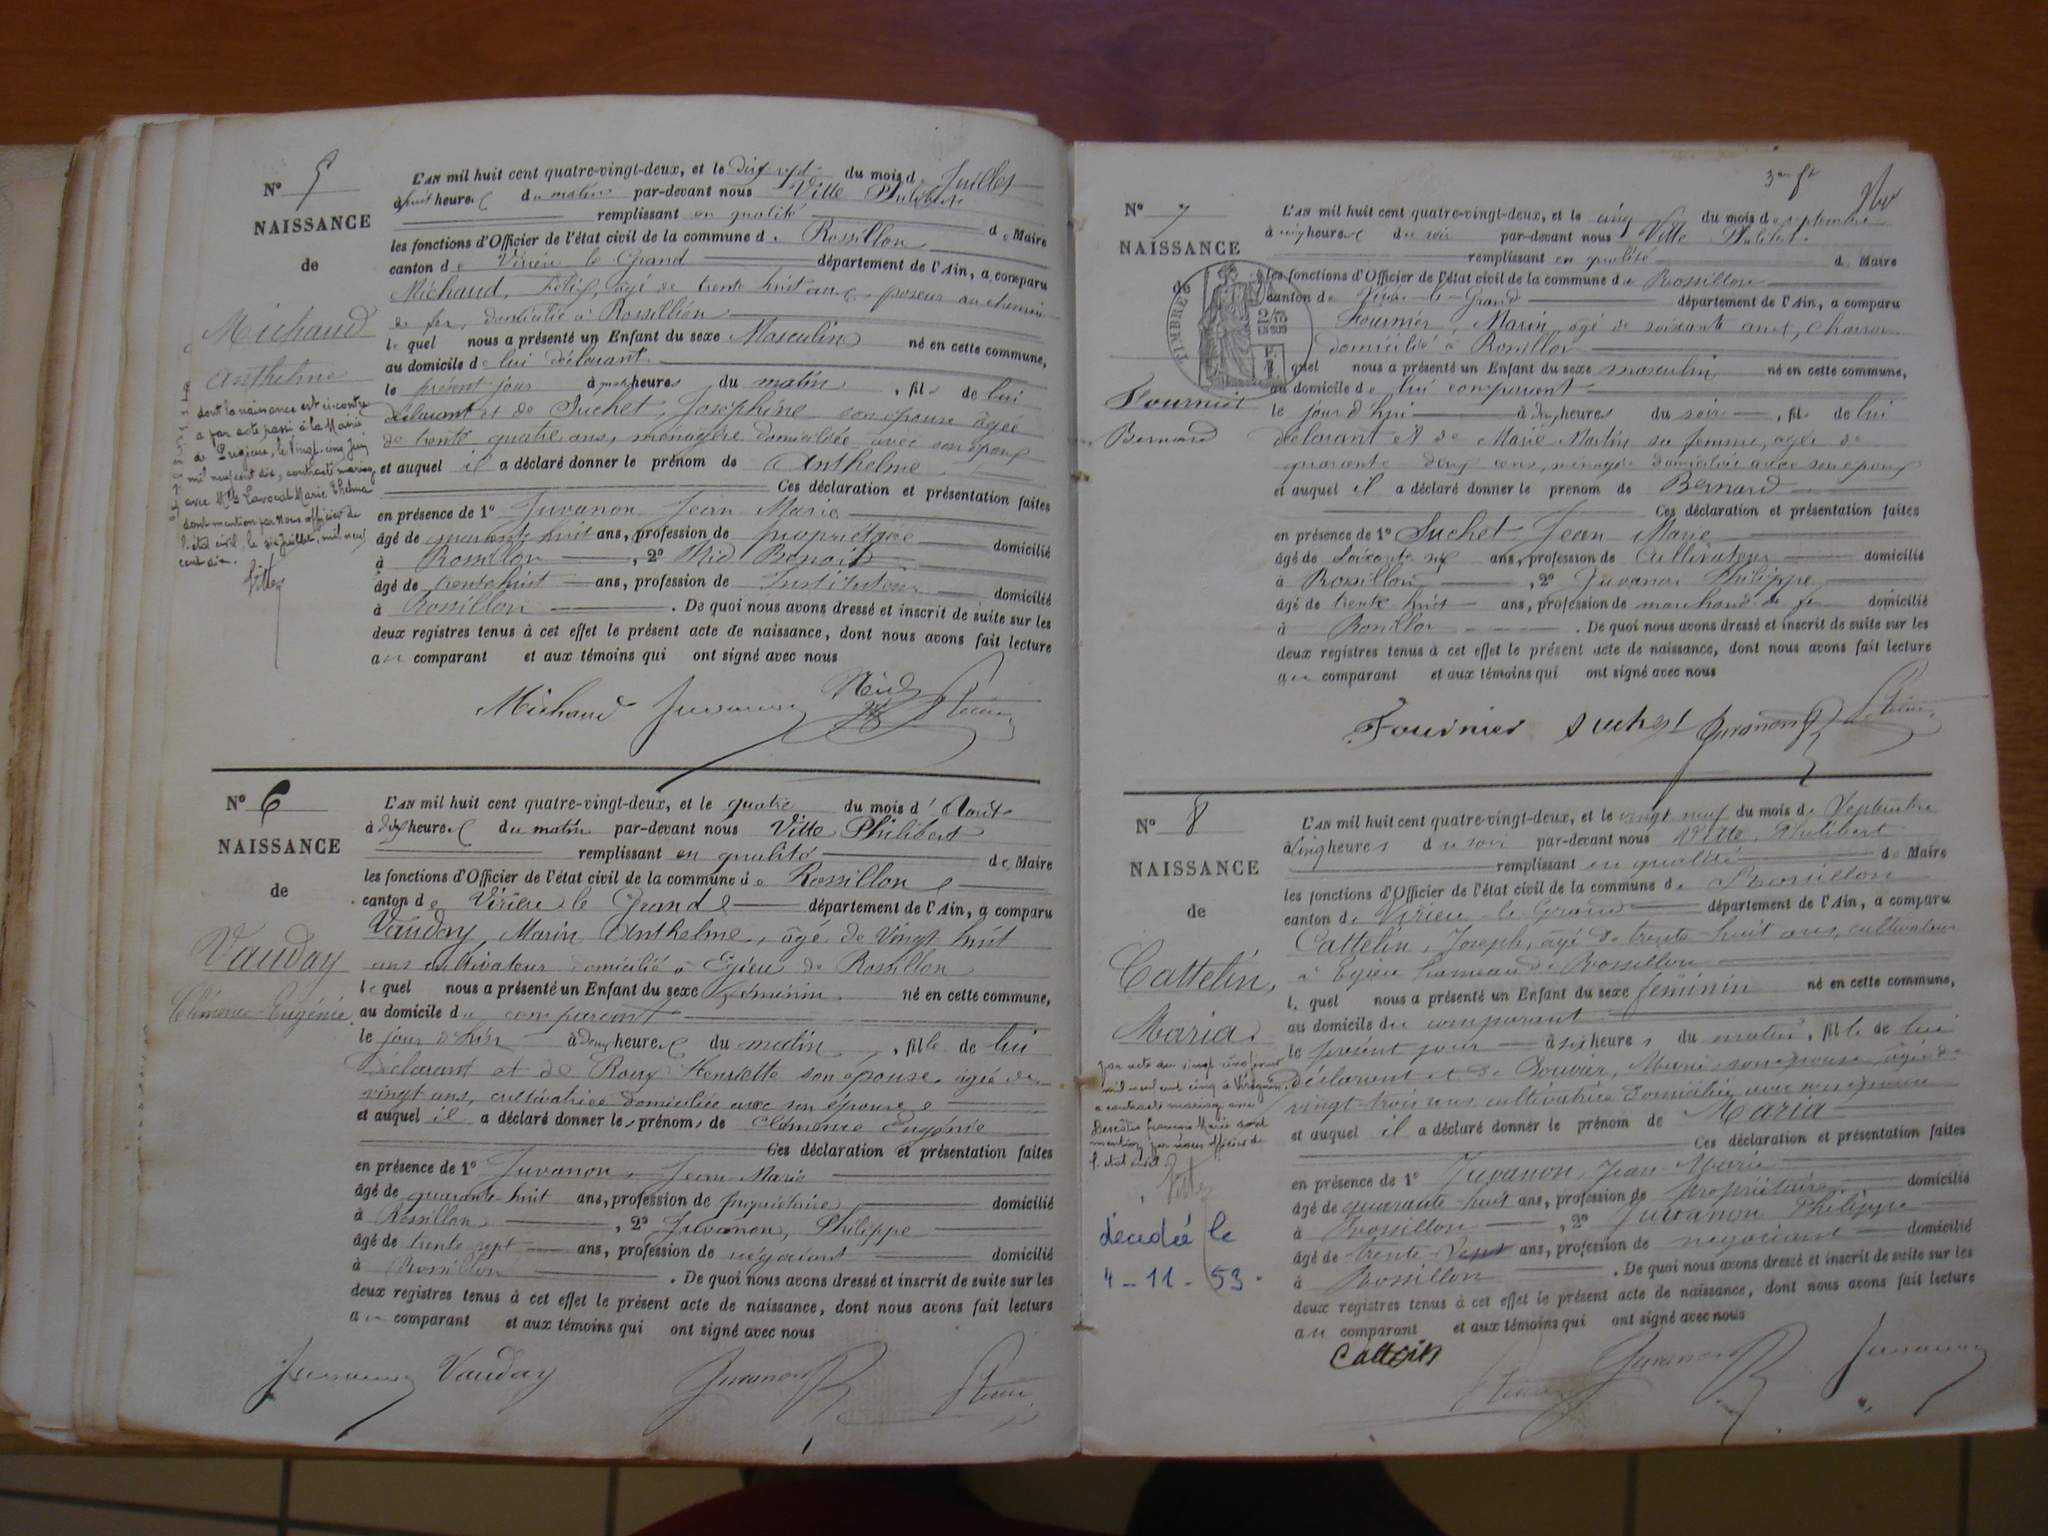 N° 5
NAISSANCE
de
Michaud
Anthelme
dont la naissance est ci-contre
a par acte passé à la Mairie
de Pugieu, le vingt-cinq Juin
mil neuf cent dix, contracté mariage
avec Mlle Marie
dont mention par Nous officier de
l'état civil, le six Juillet, mil neuf
cent dix.
L'AN mil huit cent quatre-vingt-deux, et le dix sept du mois de Juillet
à huit heures du matin par-devant nous Vitte Philibert
remplissant en qualité de Maire
les fonctions d'Officier de l'état civil de la commune de Rossillon
canton de Virieu le Grand département de l'Ain, a comparu
Michaud, Félix, âgé de trente huit ans, poseur au chemin
de fer, domicilié à Rossillon
lequel nous a présenté un Enfant du sexe Masculin né en cette commune,
au domicile de lui déclarant
le présent jour à heures du matin, fils de lui
déclarant et de Suchet, Joséphine son épouse âgée
de trente quatre ans, ménagère domiciliée avec son époux
et auquel il a déclaré donner le prénom de Anthelme
Ces déclaration et présentation faites
en présence de 1° Juvanon Jean Marie
âgé de quarante huit ans, profession de propriétaire domicilié
à Rossillon, 2° Nid Benoit
âgé de trente huit ans, profession de Instituteur domicilié
à Rossillon. De quoi nous avons dressé et inscrit de suite sur les
deux registres tenus à cet effet le présent acte de naissance, dont nous avons fait lecture
au comparant et aux témoins qui ont signé avec nous
Michaud Juvanon Nid
N° 6
NAISSANCE
de
Vauday
Clémence Eugénie
L'AN mil huit cent quatre-vingt-deux, et le quatre du mois d'Août
à dix heures du matin par-devant nous Vitte Philibert
remplissant en qualité de Maire
les fonctions d'Officier de l'état civil de la commune de Rossillon
canton de Virieu le Grand département de l'Ain, a comparu
Vauday, Marin Anthelme, âgé de vingt huit
ans cultivateur domicilié à Egieu de Rossillon
lequel nous a présenté un Enfant du sexe Féminin né en cette commune,
au domicile du comparant
le jour d'hier à deux heures du matin, fille de lui
déclarant et de Roux Henriette son épouse, âgée de
vingt ans, cultivatrice domiciliée avec son époux
et auquel il a déclaré donner les prénoms de Clémence Eugénie
Ces déclaration et présentation faites
en présence de 1° Juvanon, Jean Marie
âgé de quarante huit ans, profession de propriétaire domicilié
à Rossillon, 2° Juvanon, Philippe
âgé de trente sept ans, profession de négociant domicilié
à Rossillon. De quoi nous avons dressé et inscrit de suite sur les
deux registres tenus à cet effet le présent acte de naissance, dont nous avons fait lecture
au comparant et aux témoins qui ont signé avec nous
Juvanon Vauday Juvanon
N° 7
NAISSANCE
de
TIMBRE
Fournier
Bernard
L'AN mil huit cent quatre-vingt-deux, et le cinq du mois de septembre
à cinq heures du soir par-devant nous Vitte Philibert
remplissant en qualité de Maire
les fonctions d'Officier de l'état civil de la commune de Rossillon
canton de Virieu-le-Grand département de l'Ain, a comparu
Fournier, Marin, âgé de soixante ans, charron
domicilié à Rossillon
lequel nous a présenté un Enfant du sexe masculin né en cette commune,
au domicile de lui comparant
le jour d'hui à heures du soir, fils de lui
déclarant et de Marie Martin sa femme, âgée de
quarante deux ans, ménagère domiciliée avec son époux
et auquel il a déclaré donner le prénom de Bernard
Ces déclaration et présentation faites
en présence de 1° Suchet Jean Marie
âgé de soixante six ans, profession de Cultivateur domicilié
à Rossillon, 2° Juvanon Philippe
âgé de trente huit ans, profession de marchand de fer domicilié
à Rossillon. De quoi nous avons dressé et inscrit de suite sur les
deux registres tenus à cet effet le présent acte de naissance, dont nous avons fait lecture
au comparant et aux témoins qui ont signé avec nous
Fournier Suchet Juvanon
N° 8
NAISSANCE
de
Cattelin,
Maria
par acte du vingt cinq
mil neuf cent cinq à
a contracté mariage avec
François Marie dont
mention par nous officier de
l'état civil
décédée le
4-11-53.
L'AN mil huit cent quatre-vingt-deux, et le vingt neuf du mois de Septembre
à cinq heures du soir par-devant nous Vitte Philibert
remplissant en qualité de Maire
les fonctions d'Officier de l'état civil de la commune de Rossillon
canton de Virieu le Grand département de l'Ain, a comparu
Cattelin, Joseph, âgé de trente huit ans, cultivateur
à Egieu hameau de Rossillon
lequel nous a présenté un Enfant du sexe féminin né en cette commune,
au domicile du comparant
le présent jour à six heures du matin, fille de lui
déclarant et de Bouvier, Marie son épouse, âgée de
vingt trois ans cultivatrice domiciliée avec son époux
et auquel il a déclaré donner le prénom de Maria
Ces déclaration et présentation faites
en présence de 1° Juvanon, Jean-Marie
âgé de quarante huit ans, profession de propriétaire, domicilié
à Rossillon, 2° Juvanon Philippe
âgé de trente-sept ans, profession de négociant domicilié
à Rossillon. De quoi nous avons dressé et inscrit de suite sur les
deux registres tenus à cet effet le présent acte de naissance, dont nous avons fait lecture
au comparant et aux témoins qui ont signé avec nous
Cattelin Juvanon Juvanon